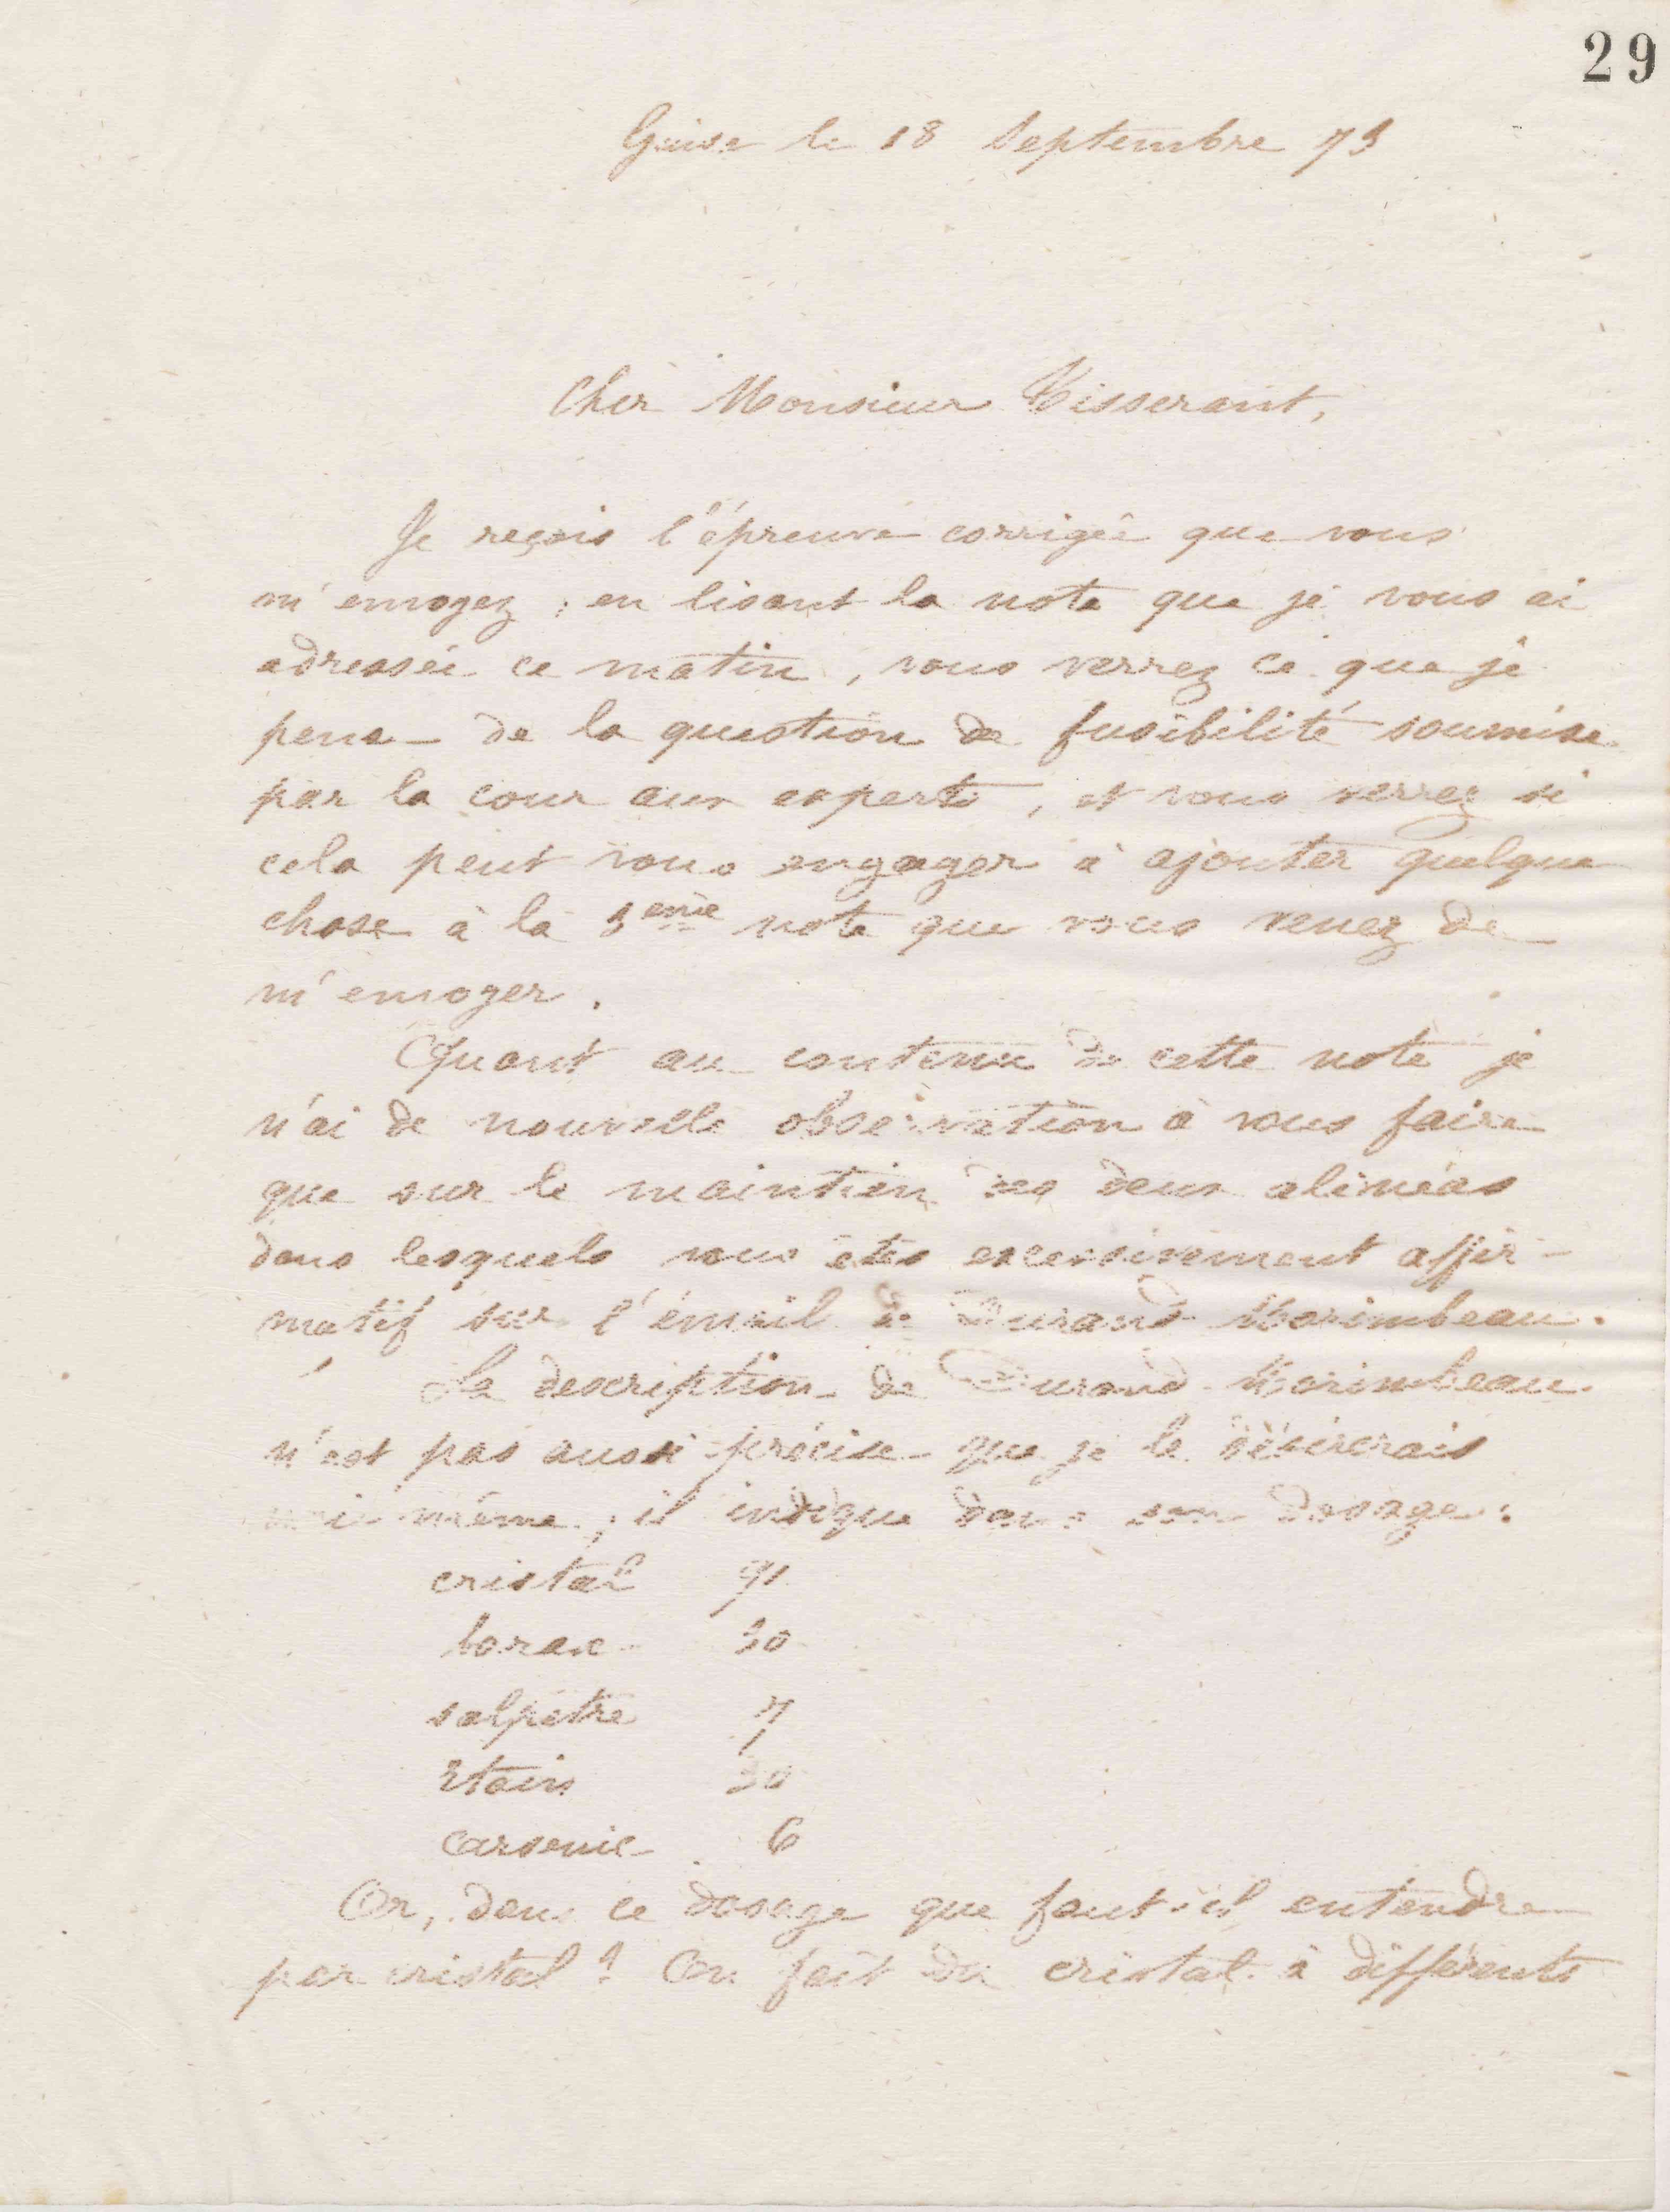 29
Guise le 18 Septembre 73
Cher Monsieur Tisserant,
Je reçois l'épreuve corrigée que vous
m'envoyez ; en lisant la note que je vous ai
adressée ce matin, vous verrez ce que je
pense de la question de fusibilité soumise
par la cour aux experts, et vous verrez si
cela peut vous engager à ajouter quelque
chose à la 3eme note que vous venez de
m'envoyer.
Quant au contenu de cette note je
n'ai de nouvelle observation à vous faire
que sur le maintien des deux alinéas
dans lesquels vous êtes excessivement affir-
matif sur l'émail de Durand Morimbeau.
La description de Durand Morimbeau
n'est pas aussi précise que je le désirerais
moi même ; il indique dans son dosage :
cristal 91
borax 30
salpêtre 7
étain 30
arsenic 6
Or, dans ce dosage que faut-il entendre
par cristal ? On fait du cristal à différents